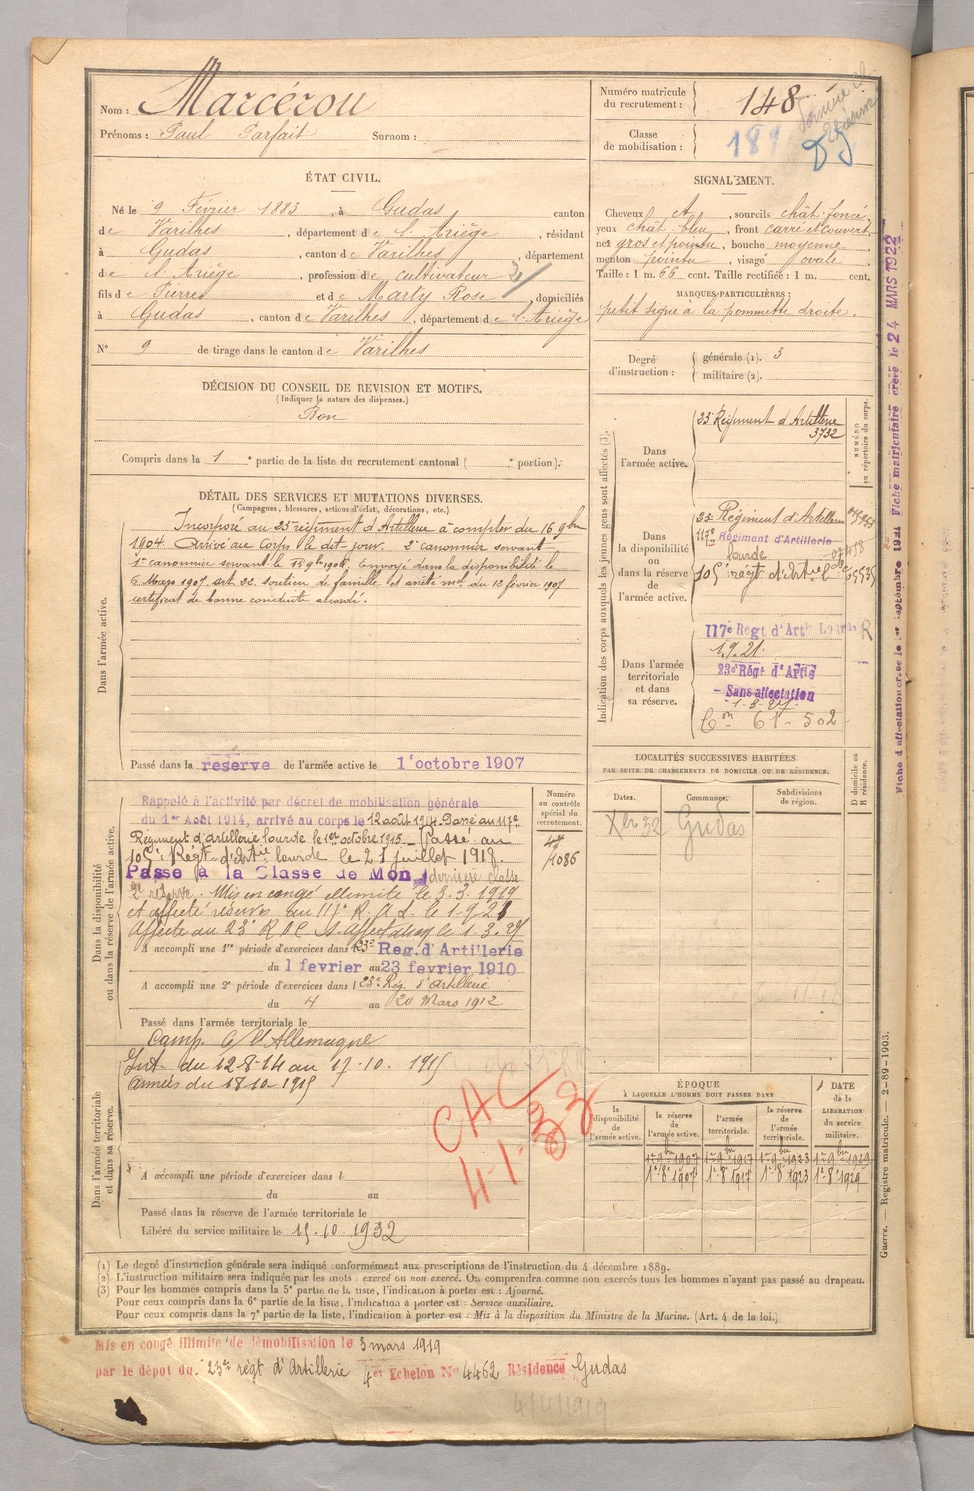 Nom : Marcérou
Prénoms : Paul Parfait Surnom :
ÉTAT CIVIL.
Né le 9 Février 1883, à Gudas canton
de Varilhes, département de l'Ariège, résidant
à Gudas, canton de Varilhes, département
de l'Ariège, profession de cultivateur
fils de Pierre et de Marty Rose, domiciliés
à Gudas, canton de Varilhes, département de l'Ariège
N° 9 de tirage dans le canton de Varilhes
DÉCISION DU CONSEIL DE REVISION ET MOTIFS.
(Indiquer la nature des dispenses.)
Bon
Compris dans la 1e partie de la liste du recrutement cantonal ( e portion).
DÉTAIL DES SERVICES ET MUTATIONS DIVERSES.
(Campagnes, blessures, actions d'éclat, décorations, etc.)
Dans l'armée active.
Incorporé au 23e régiment d'Artillerie à compter du 16 9bre
1904. Arrivé au Corps le dit jour. 2e canonnier servant
1er canonnier servant le 18 9bre 1906. Envoyé dans la disponibilité le
6 Mars 1907. art. 22. soutien de famille et arrêté mel du 12 février 1907
certificat de bonne conduite accordé.
Passé dans la réserve de l'armée active le 1er octobre 1907
Dans la disponibilité
ou dans la réserve de l'armée active.
Rappelé à l'activité par décret de mobilisation générale
du 1er Août 1914, arrivé au corps le 12 août 1914. Passé au 117e
Régiment d'artillerie lourde le 1er octobre 1915. Passé au
105e Régt d'Artie lourde le 21 juillet 1918.
Passé à la Classe de Mon dernière classe
2e réserve. Mis en congé illimité le 3.3.1919
et affecté réserves au 117e R.A.L. le 1 9 21
Affecté au 23e R.A.C. S. Affectation le 1.3.27
A accompli une 1re période d'exercices dans l 23e Reg. d'Artillerie
du 1 fevrier au 23 fevrier 1910
A accompli une 2e période d'exercices dans l 23e Rég. d'Artillerie
du 4 au 20 Mars 1912
Passé dans l'armée territoriale le
Numéro
au contrôle
spécial du
recrutement.
1086
Dans l'armée territoriale
et dans sa réserve.
Camp. c/ l'Allemagne
Int. du 12-8-14 au 17-10. 1915
Armées du 18-10-1915
CAC
4-1-33
A accompli une période d'exercices dans l
du au
Passé dans la réserve de l'armée territoriale le
Libéré du service militaire le 15.10.1932
Numéro matricule
du recrutement : 148
Classe
de mobilisation :
SIGNALEMENT.
Cheveux et, sourcils chât. foncé,
yeux chât. bleu, front carré et couvert,
nez gros et pointu, bouche moyenne
menton pointu, visage ovale
Taille : 1 m. 66 cent. Taille rectifiée : 1 m. cent.
MARQUES PARTICULIÈRES :
petit signe à la pommette droite.
Degré
d'instruction :
générale (1). 3
militaire (2).
Indication des corps auxquels les jeunes gens sont affectés (3).
Dans
l'armée active.
23e Régiment d'Artillerie
3732
NUMÉRO
au répertoire du corps.
Dans
la disponibilité
ou
dans la réserve
de
l'armée active.
23e Régiment d'Artillerie
117e Régiment d'Artillerie
lourde
105e régt d'Art
Dans l'armée
territoriale
et dans
sa réserve.
117e Regt d'Artie Lourde R
1.9.21.
23e Régt d'Artie
- Sans affectation
-1-3-27.
Con 61-502
LOCALITÉS SUCCESSIVES HABITÉES
PAR SUITE DE CHANGEMENTS DE DOMICILE OU DE RÉSIDENCE.
Dates. Communes. Subdivisions
de région.
D domicile ou
R résidence.
Xbr 32 Gudas
ÉPOQUE
À LAQUELLE L'HOMME DOIT PASSER DANS
la
disponibilité
de
l'armée active. la réserve
de
l'armée active. l'armée
territoriale. la réserve
de
l'armée
territoriale. DATE
de la
LIBÉRATION
du service
militaire.
1er 9bre 1907 1er 9bre 1917 1er 9bre 1923 1er 9bre 1929
1er 8 1907 1er 8 1917 1er 8 1923 1er 8 1929
(1) Le degré d'instruction générale sera indiqué conformément aux prescriptions de l'instruction du 4 décembre 1889.
(2) L'instruction militaire sera indiquée par les mots : exercé ou non exercé. On comprendra comme non exercés tous les hommes n'ayant pas passé au drapeau.
(3) Pour les hommes compris dans la 5e partie de la liste, l'indication à porter est : Ajourné.
Pour ceux compris dans la 6e partie de la liste, l'indication à porter est : Service auxiliaire.
Pour ceux compris dans la 7e partie de la liste, l'indication à porter est : Mis à la disposition du Ministre de la Marine. (Art. 4 de la loi.)
Guerre. — Registre matricule. — 2-89-1903.
Fiche matriculaire créée le 24 MARS 1922
Mis en congé illimité de démobilisation le 3 mars 1919
par le dépôt du 23e régt d'Artillerie 4er Echelon N° 4462 Résidence Gudas
4/4/1919